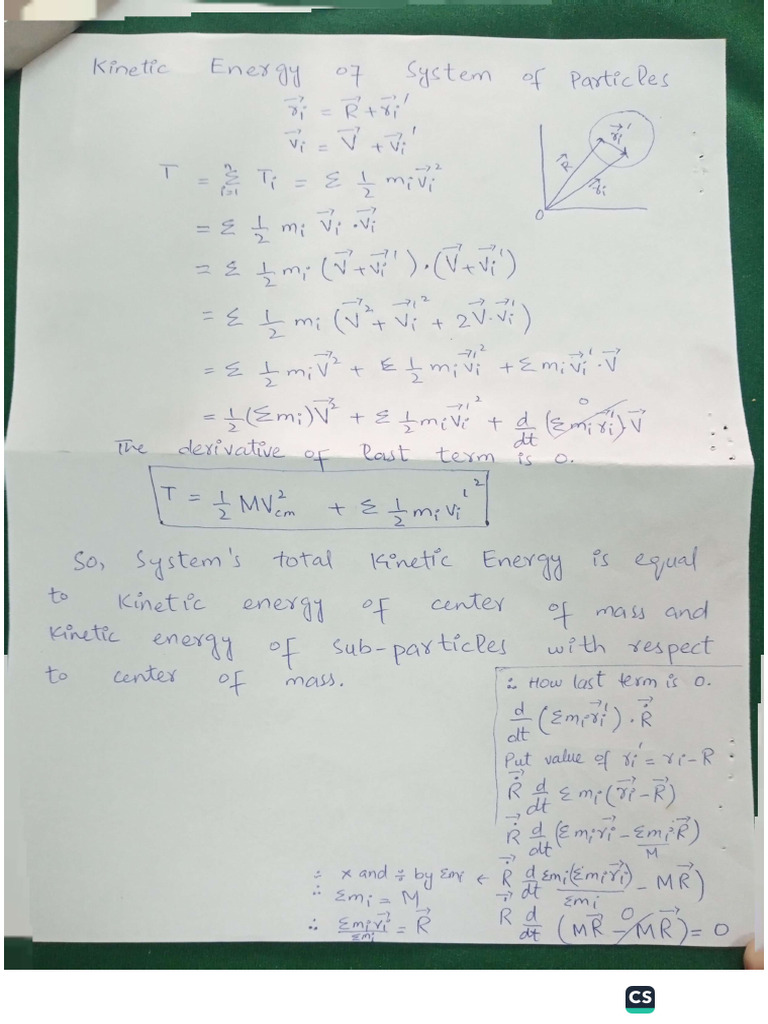 Kinetic Energy of System of Particles
r⃗ᵢ = R⃗ + r⃗ᵢ'
v⃗ᵢ = V⃗ + v⃗ᵢ'
T = Σᵢ₌₁ⁿ Tᵢ = Σ 1/2 mᵢ v⃗ᵢ²
R⃗ r⃗ᵢ' r⃗ᵢ O
= Σ 1/2 mᵢ v⃗ᵢ · v⃗ᵢ
= Σ 1/2 mᵢ (V⃗ + v⃗ᵢ') · (V⃗ + v⃗ᵢ')
= Σ 1/2 mᵢ (V⃗² + v⃗ᵢ'² + 2V⃗ · v⃗ᵢ')
= Σ 1/2 mᵢ V⃗² + Σ 1/2 mᵢ v⃗ᵢ'² + Σ mᵢ v⃗ᵢ' · V⃗
= 1/2 (Σmᵢ) V⃗² + Σ 1/2 mᵢ v⃗ᵢ'² + d/dt (Σ mᵢ r⃗ᵢ') V⃗ 0
The derivative of last term is 0.
T = 1/2 MV²cm + Σ 1/2 mᵢ vᵢ'²
So, System's total Kinetic Energy is equal
to Kinetic energy of center of mass and
Kinetic energy of sub-particles with respect
to center of mass.
∴ How last term is 0.
d/dt (Σmᵢ r⃗ᵢ') · R⃗̇
Put value of rᵢ' = rᵢ - R
R⃗̇ d/dt Σ mᵢ (r⃗ᵢ - R⃗)
R⃗̇ d/dt (Σ mᵢ r⃗ᵢ - Σmᵢ R⃗)
M
∵ x and ÷ by Σmᵢ ← R⃗̇ d/dt Σmᵢ(Σmᵢ r⃗ᵢ)/Σmᵢ - MR⃗)
∴ Σmᵢ = M
∴ Σmᵢ r⃗ᵢ/Σmᵢ = R⃗
R⃗̇ d/dt (MR⃗ - MR⃗) = 0 0
CS